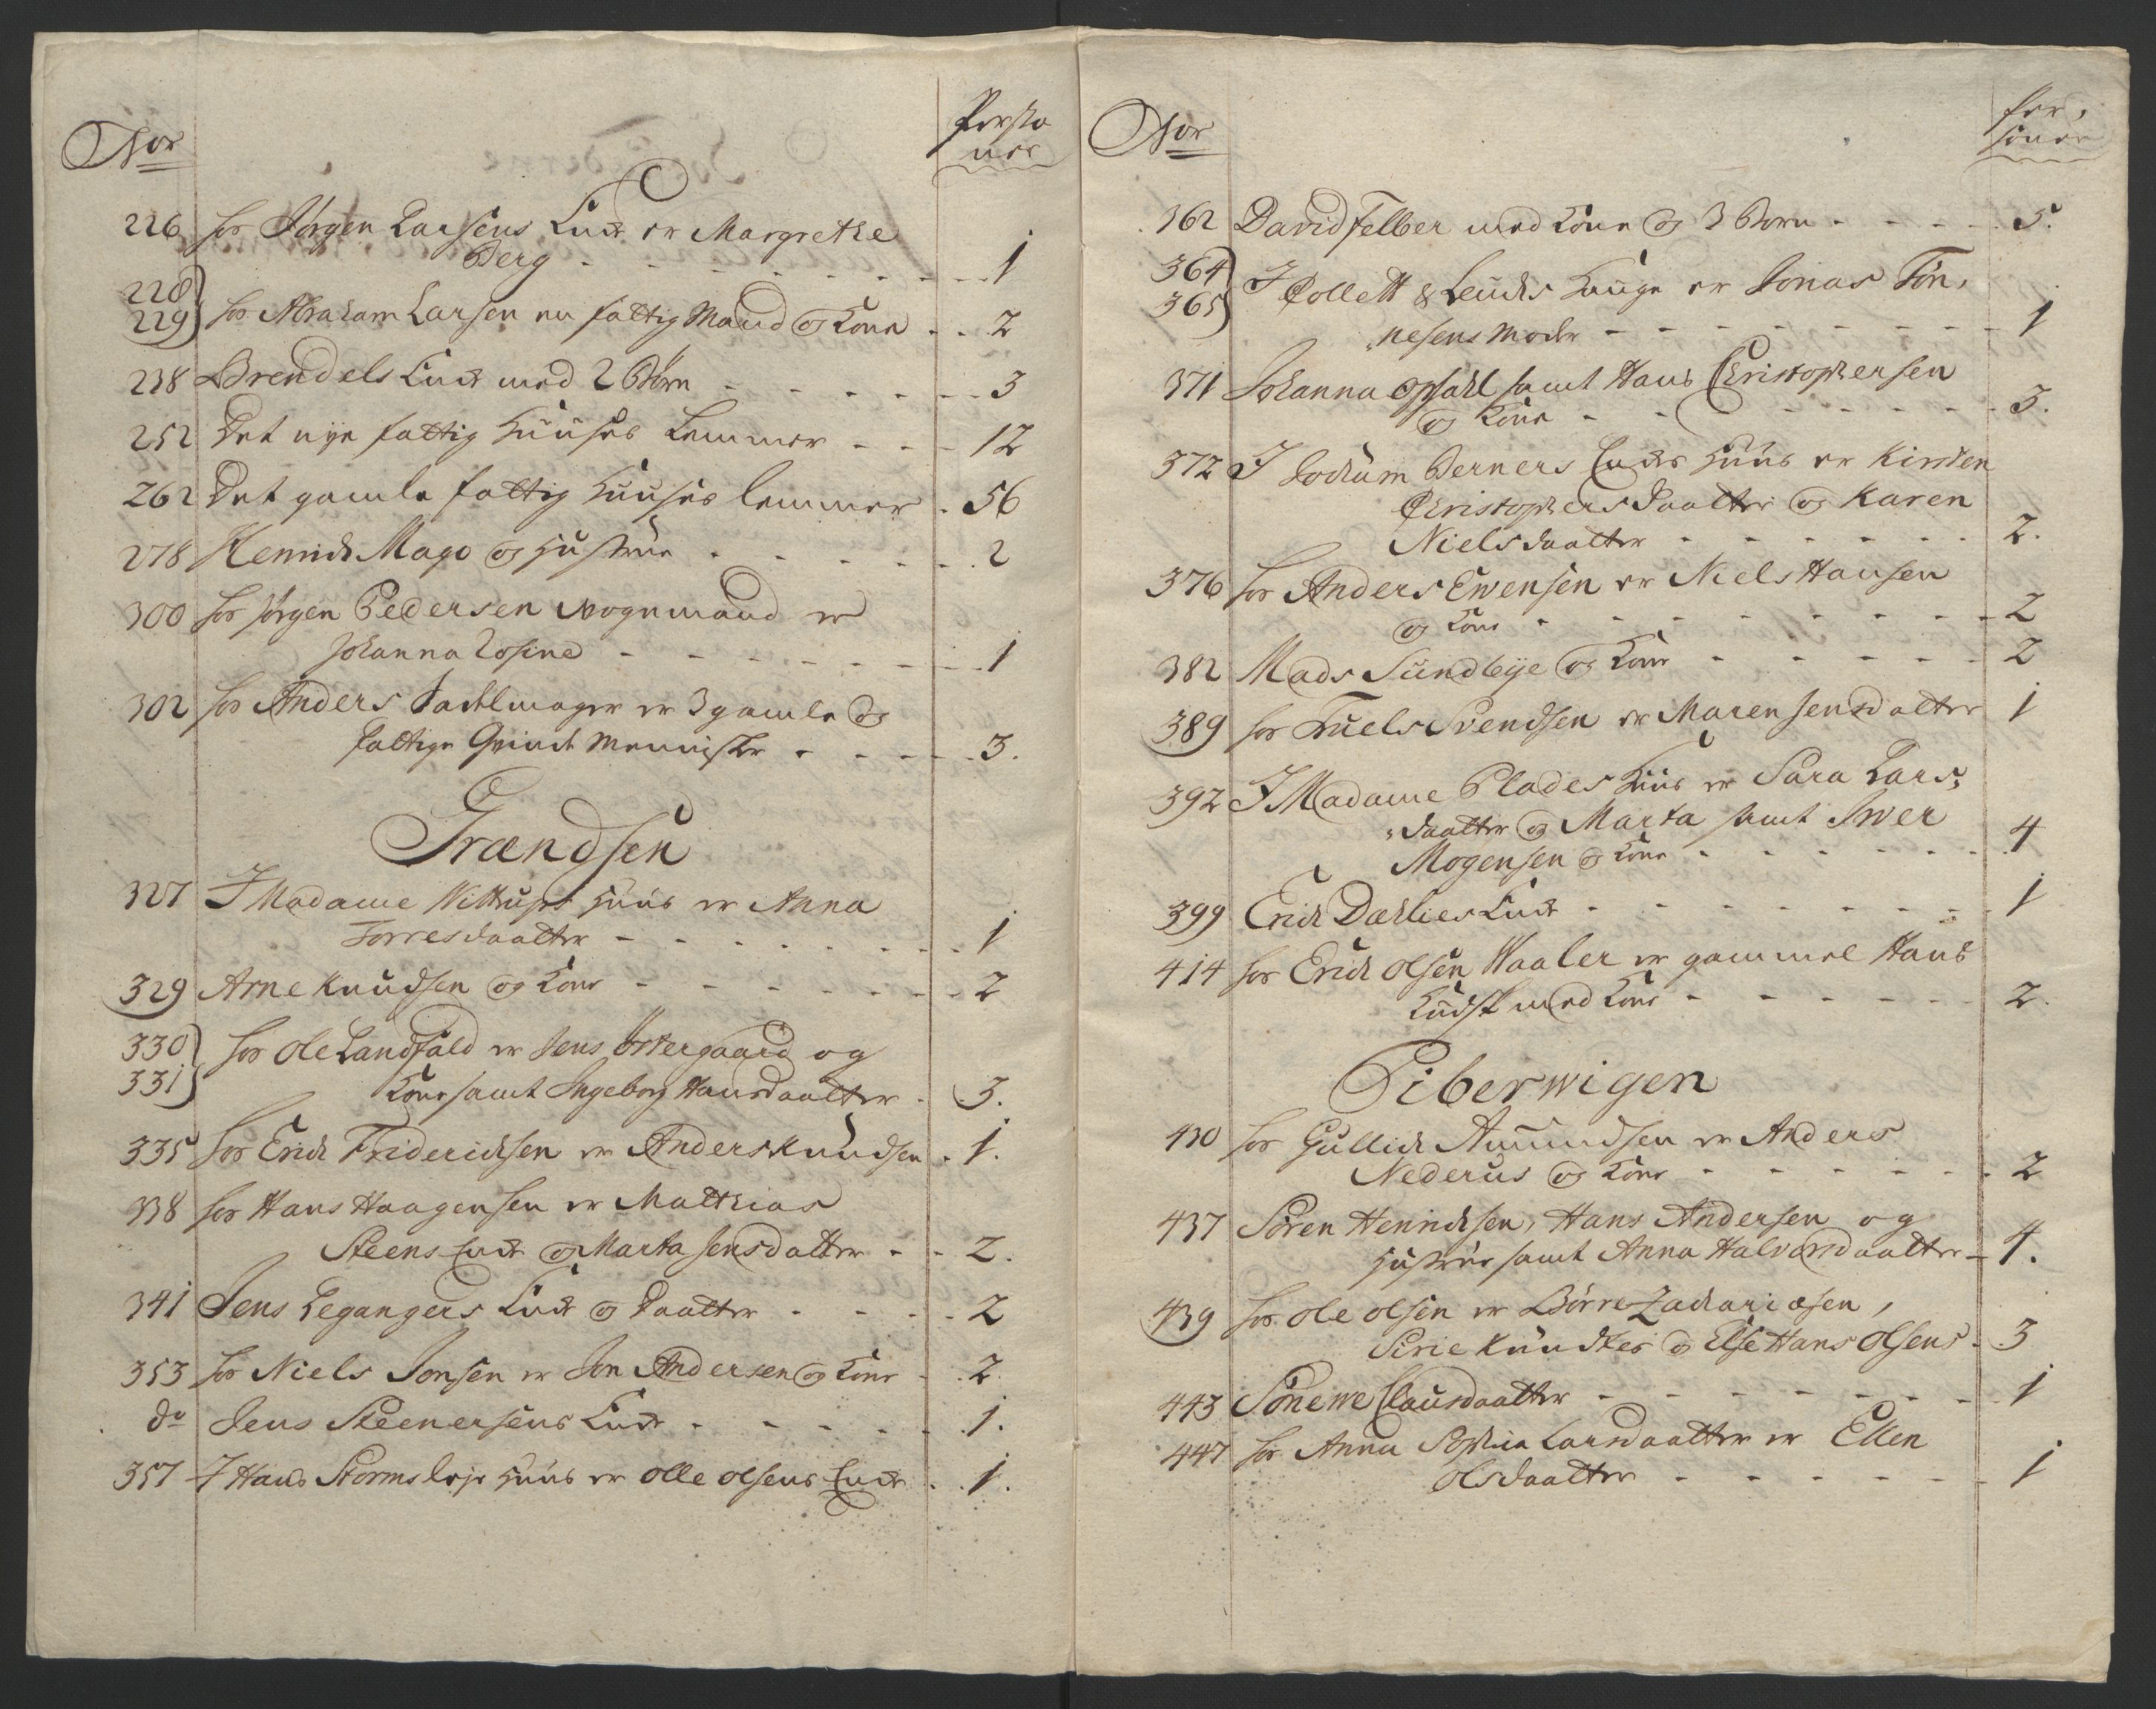 Nor
Perso
ner
226 hos Jørgen Larsens Enke er Margrethe
Berg - - - - - - - 1
228
229 hos Abraham Larsen en fattig Mand og Kone - - 2
238 Brendels Enke med 2 Børn - - - - - 3
252 Det nye fattig Huuses Lemmer - - - 12
262 Det gamle fattig Huuses lemmer - 56
278 Henrich Mago og Hustrue - - - - - 2
300 hos Jørgen Pedersen Vognmand er
Johanna Rosine - - - - - - - 1
302 hos Anders Sadelmager er 3 gamle og
fattige Qvinde Mennisker - - - - 3.
Grændsen
327 I Madame Wittrups Huus er Anna
Torresdaatter - - - - - - - 1
329 Arne Knudsen og Kone - - - - - - 2
330
331 hos Ole Landfald er Jens Østergaard og
Kone samt Ingeborg Hansdaatter - 3.
335 hos Erich Friderichsen er Anders Knudsen - 1.
338 hos Hans Haagensen er Matthias
Steens Enke og Marta Jensdatter - - 2.
341 Jens Legangers Enke og Daatter - - - - 2
353 hos Niels Jonsen er Jon Andersen og Kone - 2.
do Jens Steenersens Enke - - - - - 1.
357 I Hans Storms leje Huus er Olle Olsens Enke - 1.
Nor
Per,
soner
362 David Felber med Kone og 3 Børn - - - - 5.
364
365 I Collett & Leuchs Gaug er Jonas Tøn,
nesens Moder - - - - - - - 1
371 Johanna Opsahl samt Hans Christophersen
og Kone - - - - - - - 3.
372 I Jochum Berners Enkes Huus er Kirsten
Christophersdaatter og Karen
Nielsdaatter - - - - - - 2.
376 hos Anders Ewensen er Niels Hansen
og Kone - - - - - - - - 2
382 Mads Sundbye og Kone - - - - - 2
389 hos Truels Svendsen er Maren Jensdatter 1
392 I Madame Plades Huus er Sara Lars,
daatter og Marta samt Iwer
Mogensen og Kone - - - - - - 4
399 Erich Dæhlies Enke - - - - - - - 1
414 hos Erich Olsen Waaler er gammel Hans
Kudsk med Kone - - - - - - 2.
Piberwigen
430 hos Gullich Amundsen er Anders
Nederus og Kone - - - - - - 2
437 Søren Henrichsen, Hans Andersen og
Hustrue samt Anna Halvorsdaatter - 4.
439 hos Ole Olsen er Børre Zachariæsen,
Sirie Knudtes og Else Hans Olsens - 3
443 Sønewe Clausdaatter - - - - - - - 1
447 hos Anna Sophia Larsdaatter er Ellen
Olsdaatter - - - - - - 1